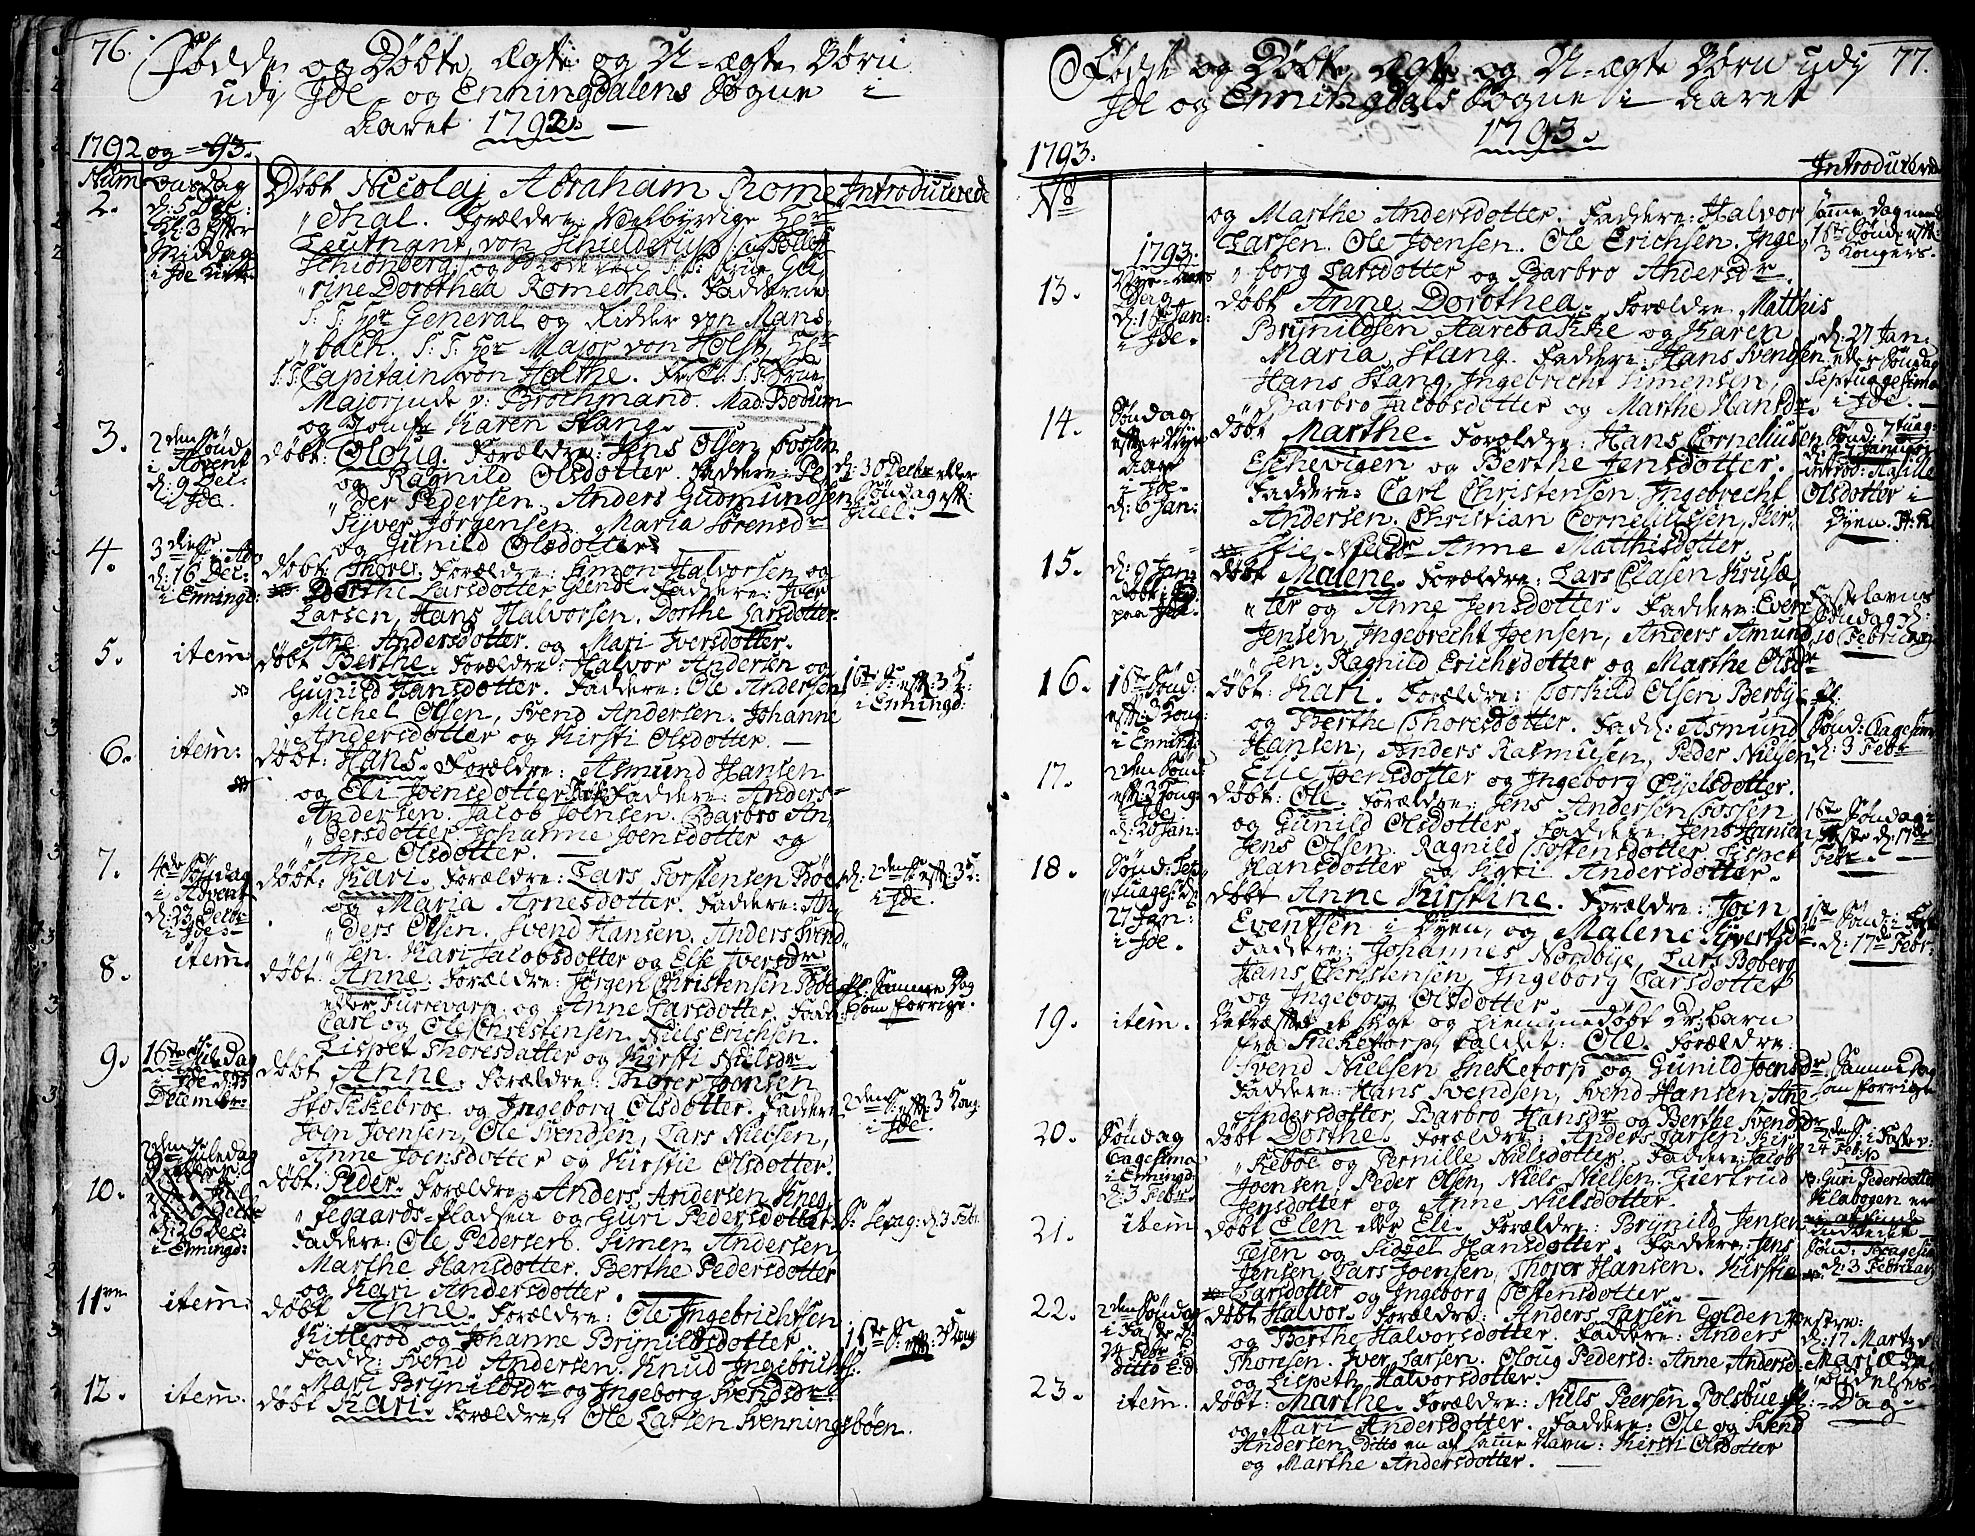 76.
Fødde og Døbte Ægte og U=ægte Børn
udj Jde og Enningdalens Sogne i
Aaret 1792.
1792 og = 93.
Num
Daasdag
Introducerede
2.
d: 5 Dec:
Kl: 3 Efter
Middag
i Jde Kirk.
Døbt Nicolaj Abraham Rome
dhal. Forældre: Velbyrdige Hr
Leutnant von Schielderup
Schionberg og
rine Dorothea Romedhal. Faddere
S: T: Hr General og Ridder von Mans
bach. S: T: Hr Major von Holst,
S: T: Capitain von Holthe. S: T: Frue
Majorjude v: Brochmand. Mad: Bodum
og Jomfr Karen Stang.
3.
2den Sönd
i Advent
d: 9 Dec:
i Jde.
døbt: Oloug. Forældre: Jens Olsen Fossen
og Ragnild Olsdotter. Faddere: Pe
der Pedersen, Anders Gudmundsen
Siver Jørgensen. Maria Sørensdr
og Gunild Olsdotter
d: 30 Decbr eller
Søndag eft:
Juel.
4.
3die S: Adv
d: 16 Dec:
i Enningd:
døbt: Thores. Forældre: Simon Halvorsen og
Dorthe Larsdotter Elende. Faddere: Iver
Larsen, Hans Halvorsen. Dorthe Larsdotter
Ane Andersdotter. og Mari Iversdotter.
5.
item
døbt Berthe. Forældre: Halvor Andersen og
Gunild Hansdotter. Faddere: Ole Andersen
Michel Olsen, Svend Andersen. Johanne
Andersdotter og Kirsti Olsdotter.
1ste S: eft: 3 K:
i Enningd:
6.
item:
døbt: Hans. Forældre: Asmund Hansen
og Eli Joensdotter Faddere: Anders
Andersen. Jacob Joensen. Barbro An
dersdotter Johanne Joensdotter og
Ane Olsdotter.
7.
4de Söndag
i Advent
d: 23 Decbr
i Jde:
døbt: Kari. Forældre: Lars Torstensen Bøe
og Maria Arnesdotter. Faddere: An
ders Olsen. Svend Hansen. Anders Svend
sen. Kari Jacobsdotter og Else Iversdr
d: 2den S: eft: 3 K:
i Jde.
8.
item.
døbt: Anne. Forældre: Jørgen Christensen Bøe
eller Furrevarp og Anne Larsdotter. Fadd:
Carl og Ole Christensen. Niels Erichsen.
Lispet Thoresdatter og Kirsti Nielsdr
Samme Dag
som forrige.
9.
1ste Juledag
i Jde d: 25
December:
døbt Anne. Forældre: Thorer Joensen
Stokkebroe og Ingeborg Olsdotter. Faddere
Joen Joensen, Ole Svendsen, Lars Nielsen,
Anne Joensdotter og Kirstie Olsdotter.
2den S: eft: 3 Kong:
i Jde.
10.
2den Juledag
d: 26 Dec:
i Enningd:
døbt: Peder. Forældre: Anders Andersen Kneg
segaards=Pladsen og Guri Pedersdotter
Faddere: Ole Pedersen. Simen Andersen
Marthe Hansdotter. Berthe Pedersdotter
og Kari Andersdotter.
S: Sexag: d: 3 Febr.
11.
item:
døbt Anne. Forældre: Ole Ingebrichtsen
Kitterød og Johanne Brynildsdotter
Fadd: Svend Andersen. Knud Ingebrichts.
Mari Brynildsdr og Ingeborg Svendsdr
1ste S: eft: 3 Kong
12.
item.
døbt Kari. Forældre: Ole Larsen Svenningsbøen.
77.
Fødde og Døbte Ægte og U=ægte Børn udj
Jde og Enningdals Sogne i Aaret
1793.
1793.
No
Introducerede
og Marthe Andersdotter. Faddere: Halvor
Larsen. Ole Joensen. Ole Erichsen. Inge
borg Larsdotter og Barbro Andersdr
samme Dag nemlig
1ste Sönd: eft
3 Kongers.
13.
1793.
Nye=Aars
Dag
d: 1ste Jan:
i Jde.
døbt Anne Dorothea. Forældre Matthis
Brynildsen Aarebakke og Karen
Maria Stang. Faddere: Hans Svendsen
Hans Stang, Ingebrecht Simensen,
Barbro Jacobsdotter og Marthe Hansdr
d: 27 Jan:
eller Söndag
Septuagesima
i Jde.
14.
Søndag
efter Nye
Aar
i Jde.
d: 6 Jan:
døbt Marthe. Forældre: Hans Corneliusen
Eschevigen og Berthe Jensdotter.
Faddere: Carl Christensen Ingebrecht
Andersen. Christian Corneliussen, Kir
stie Nielsdr Anne Matthisdotter
Sönd: 7tuag:
d: 27 Januarij
introd:
Olsdotter i
Byen.
15.
d: 9 Jan:
døbt
paa Jde
døbt Malene. Forældre: Lars Clasen Krusæ
ter og Anne Jensdotter. Faddere: Even
Jensen, Ingebrecht Joensen, Anders Amund
sen. Ragnild Erichsdotter og Marthe Olsdr
Fastelavns
Søndag d:
10 Februarij
16.
1ste Sönd:
eft: 3 Kong:
i Enningd:
døbt: Kari. Forældre: Torkild Olsen Berbye
og Berthe Thoresdotter. Fadd: Asmund
Hansen, Anders Rasmussen, Peder Nielsen,
Elie Joensdotter og Ingeborg Ejelsdotter.
Sönd:
d: 3 Febr
17.
2den Sönd:
eft: 3 Kong:
i Jde
d: 20 Jan:
døbt: Ole. Forældre: Jens Andersen Fossen
og Gunild Olsdotter. Faddere: Jens Hansen
Jens Olsen. Ragnild Tostensdotter Lispet
Hansdotter og Sigri Andersdotter.
1ste Søndag i
Faste d: 17de
Febr.
18.
Sønd: Sep
tuages: d:
27 Jan:
i Jde.
døbt Anne Kirstine. Forældre: Joen
Eventsen i Byen, og Malene Sivertsd
Faddere: Johannes Nordbye, Lars Boberg
Hans Christensen, Ingeborg Larsdotter
og Ingeborg Olsdotter.
1ste Sönd: i Fast
d: 17de Febr:
19.
item.
Bekræftet et sygt og hiemmedøbt Dr:barn
fra Sneketorp kaldet: Ole. Forældre:
Svend Nielsen Sneketorp og Gunild Joensdr
Faddere: Hans Svendsen, Svend Hansen, Ane
Andersdotter, Barbro Hansdr og Berthe Svendsdr
Samme Dag
som forrige
20.
Søndag
Sexagesima
i Enningd:
d: 3 Febr
døbt Dorthe. Forældre: Anders Larsen Kir
kebøe og Pernille Nielsdotter. Faddere: Jacob
Joensen, Peder Olsen, Niels Nielsen. Giertrud
Jensdotter og Anne Nielsdotter.
2den S: i Faste d:
24 Febr
Guri Pedersdotter
21.
item
døbt Elen eller Eli. Forældre: Brynild Jensen
og Sidzel Hansdotter. Faddere: Jens
Jensen, Lars Joensen, Thorer Hansen. Kirstie
Larsdotter og Ingeborg Tostensdotter.
Sönd: Sexagesim
d: 3 Februarij
22.
2den Søndag
i Faste d:
24 Febr
ditto E: d:
døbt Halvor. Forældre: Anders Larsen Holden
og Berthe Halvorsdotter. Faddere: Anders
Thoresen. Iver Larsen. Oloug Pedersd: Anne Andersd:
og Lispeth Halvorsdotter.
d: 17 Martz
Mariæ Be
budelses
=Dag
23.
item.
døbt: Marthe. Forældre: Niels Peersen Folsbue
og Mari Andersdotter. Faddere: Ole og Svend
Andersen ditto en af samme Navn: Kirsti Olsdotter
og Marthe Andersdotter.